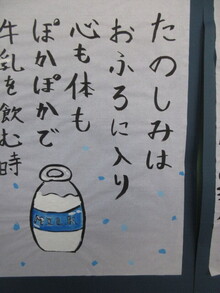 たのしみは
おふろに入り
心も体も
ぽかぽかで
牛乳を飲む時